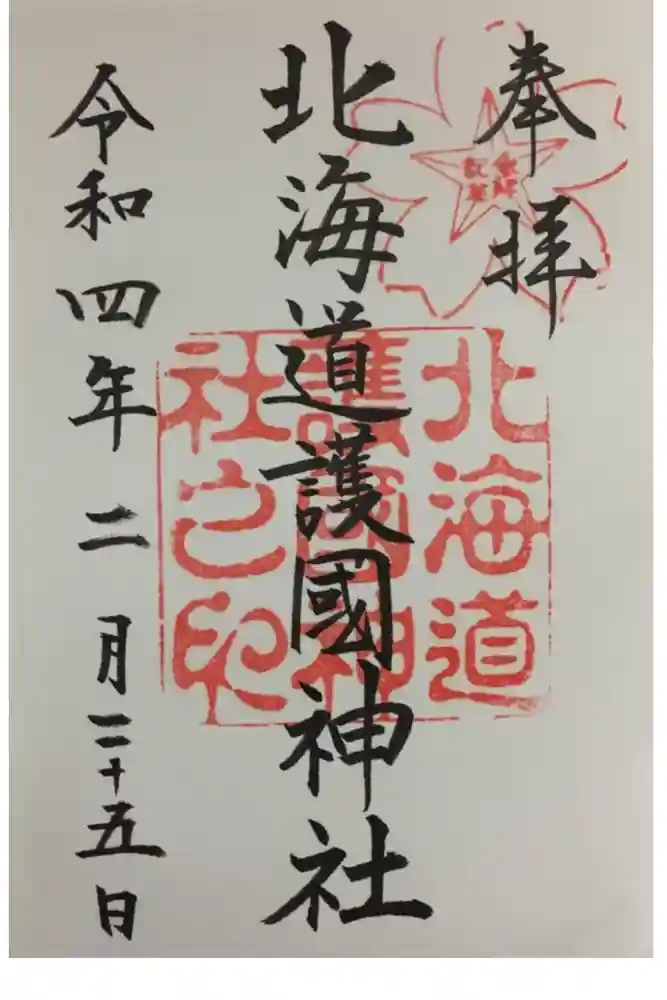 奉拝
北海道護國神社
令和四年二月二十五日
北海道
護國神
社之印